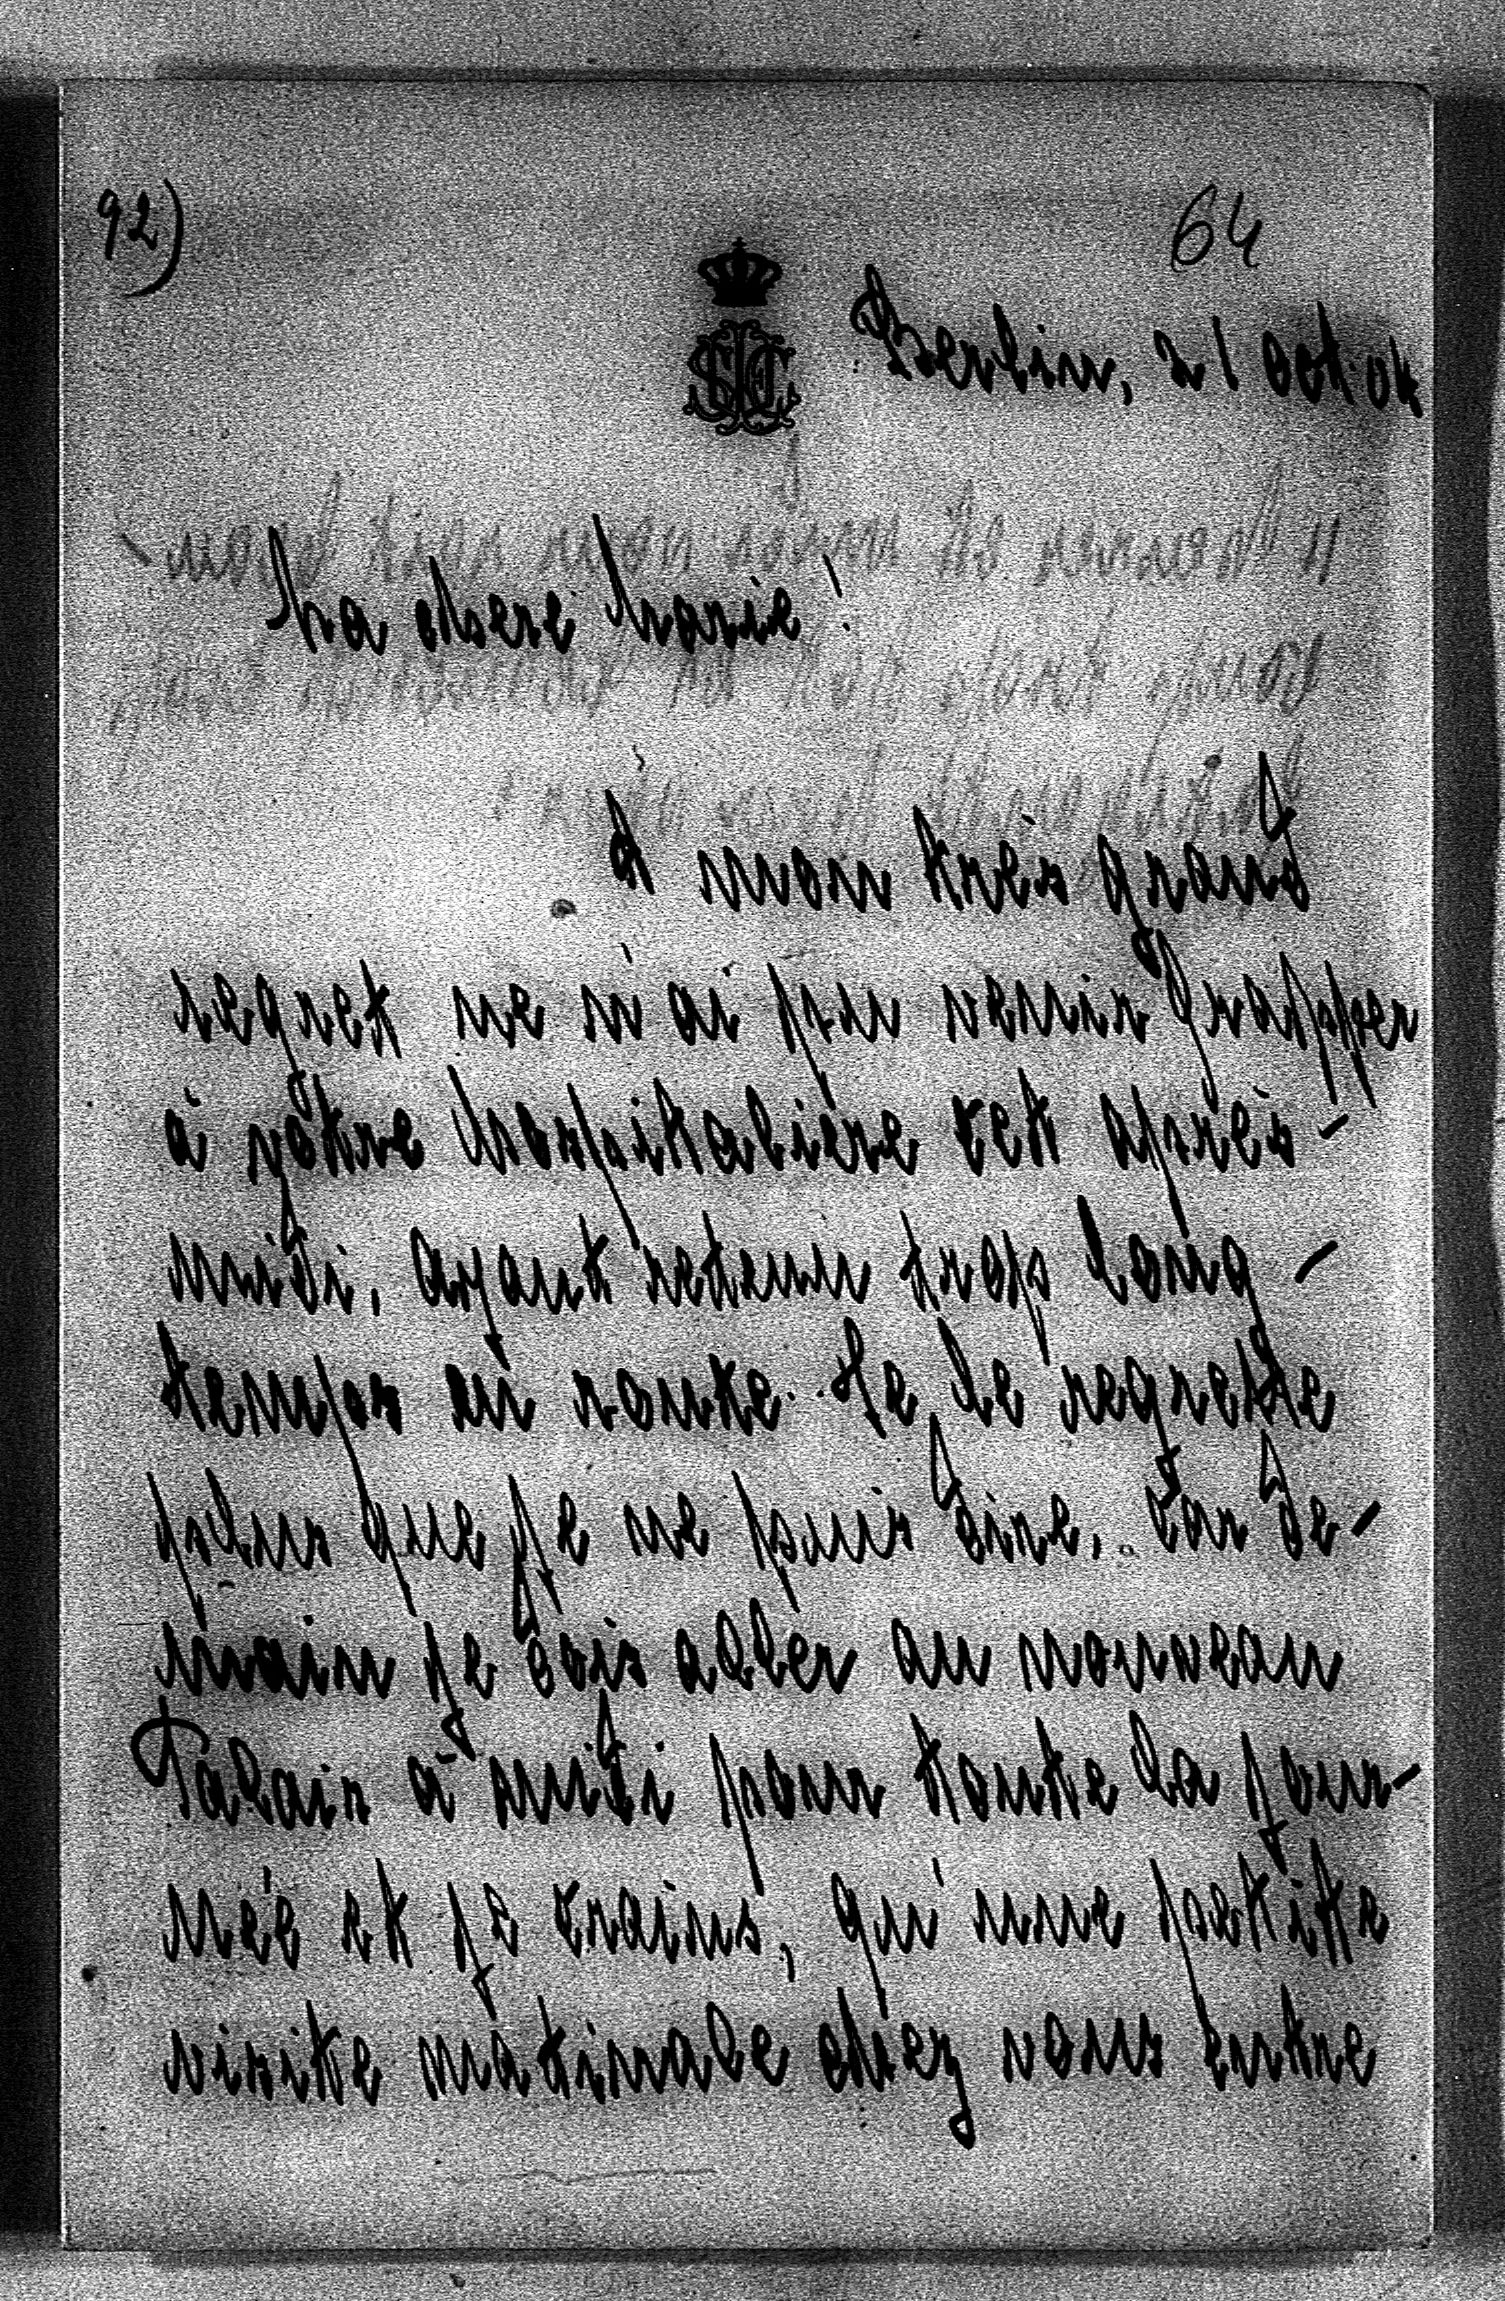 92)
64
Berlin, 21 oct. 04
Ma chere Marie!
A mon très grand
regret ne m'ai pu venir frapper
à vôtre hospitalière cet après-
midi, ayant retenu trop long-
temps en route. Je le regrette
plus que je ne puis dire, car de-
main je dois aller au nouveau
Palais à midi pour toute la jour-
née et je crains, qu'une petite
visite matinale chez vous entre